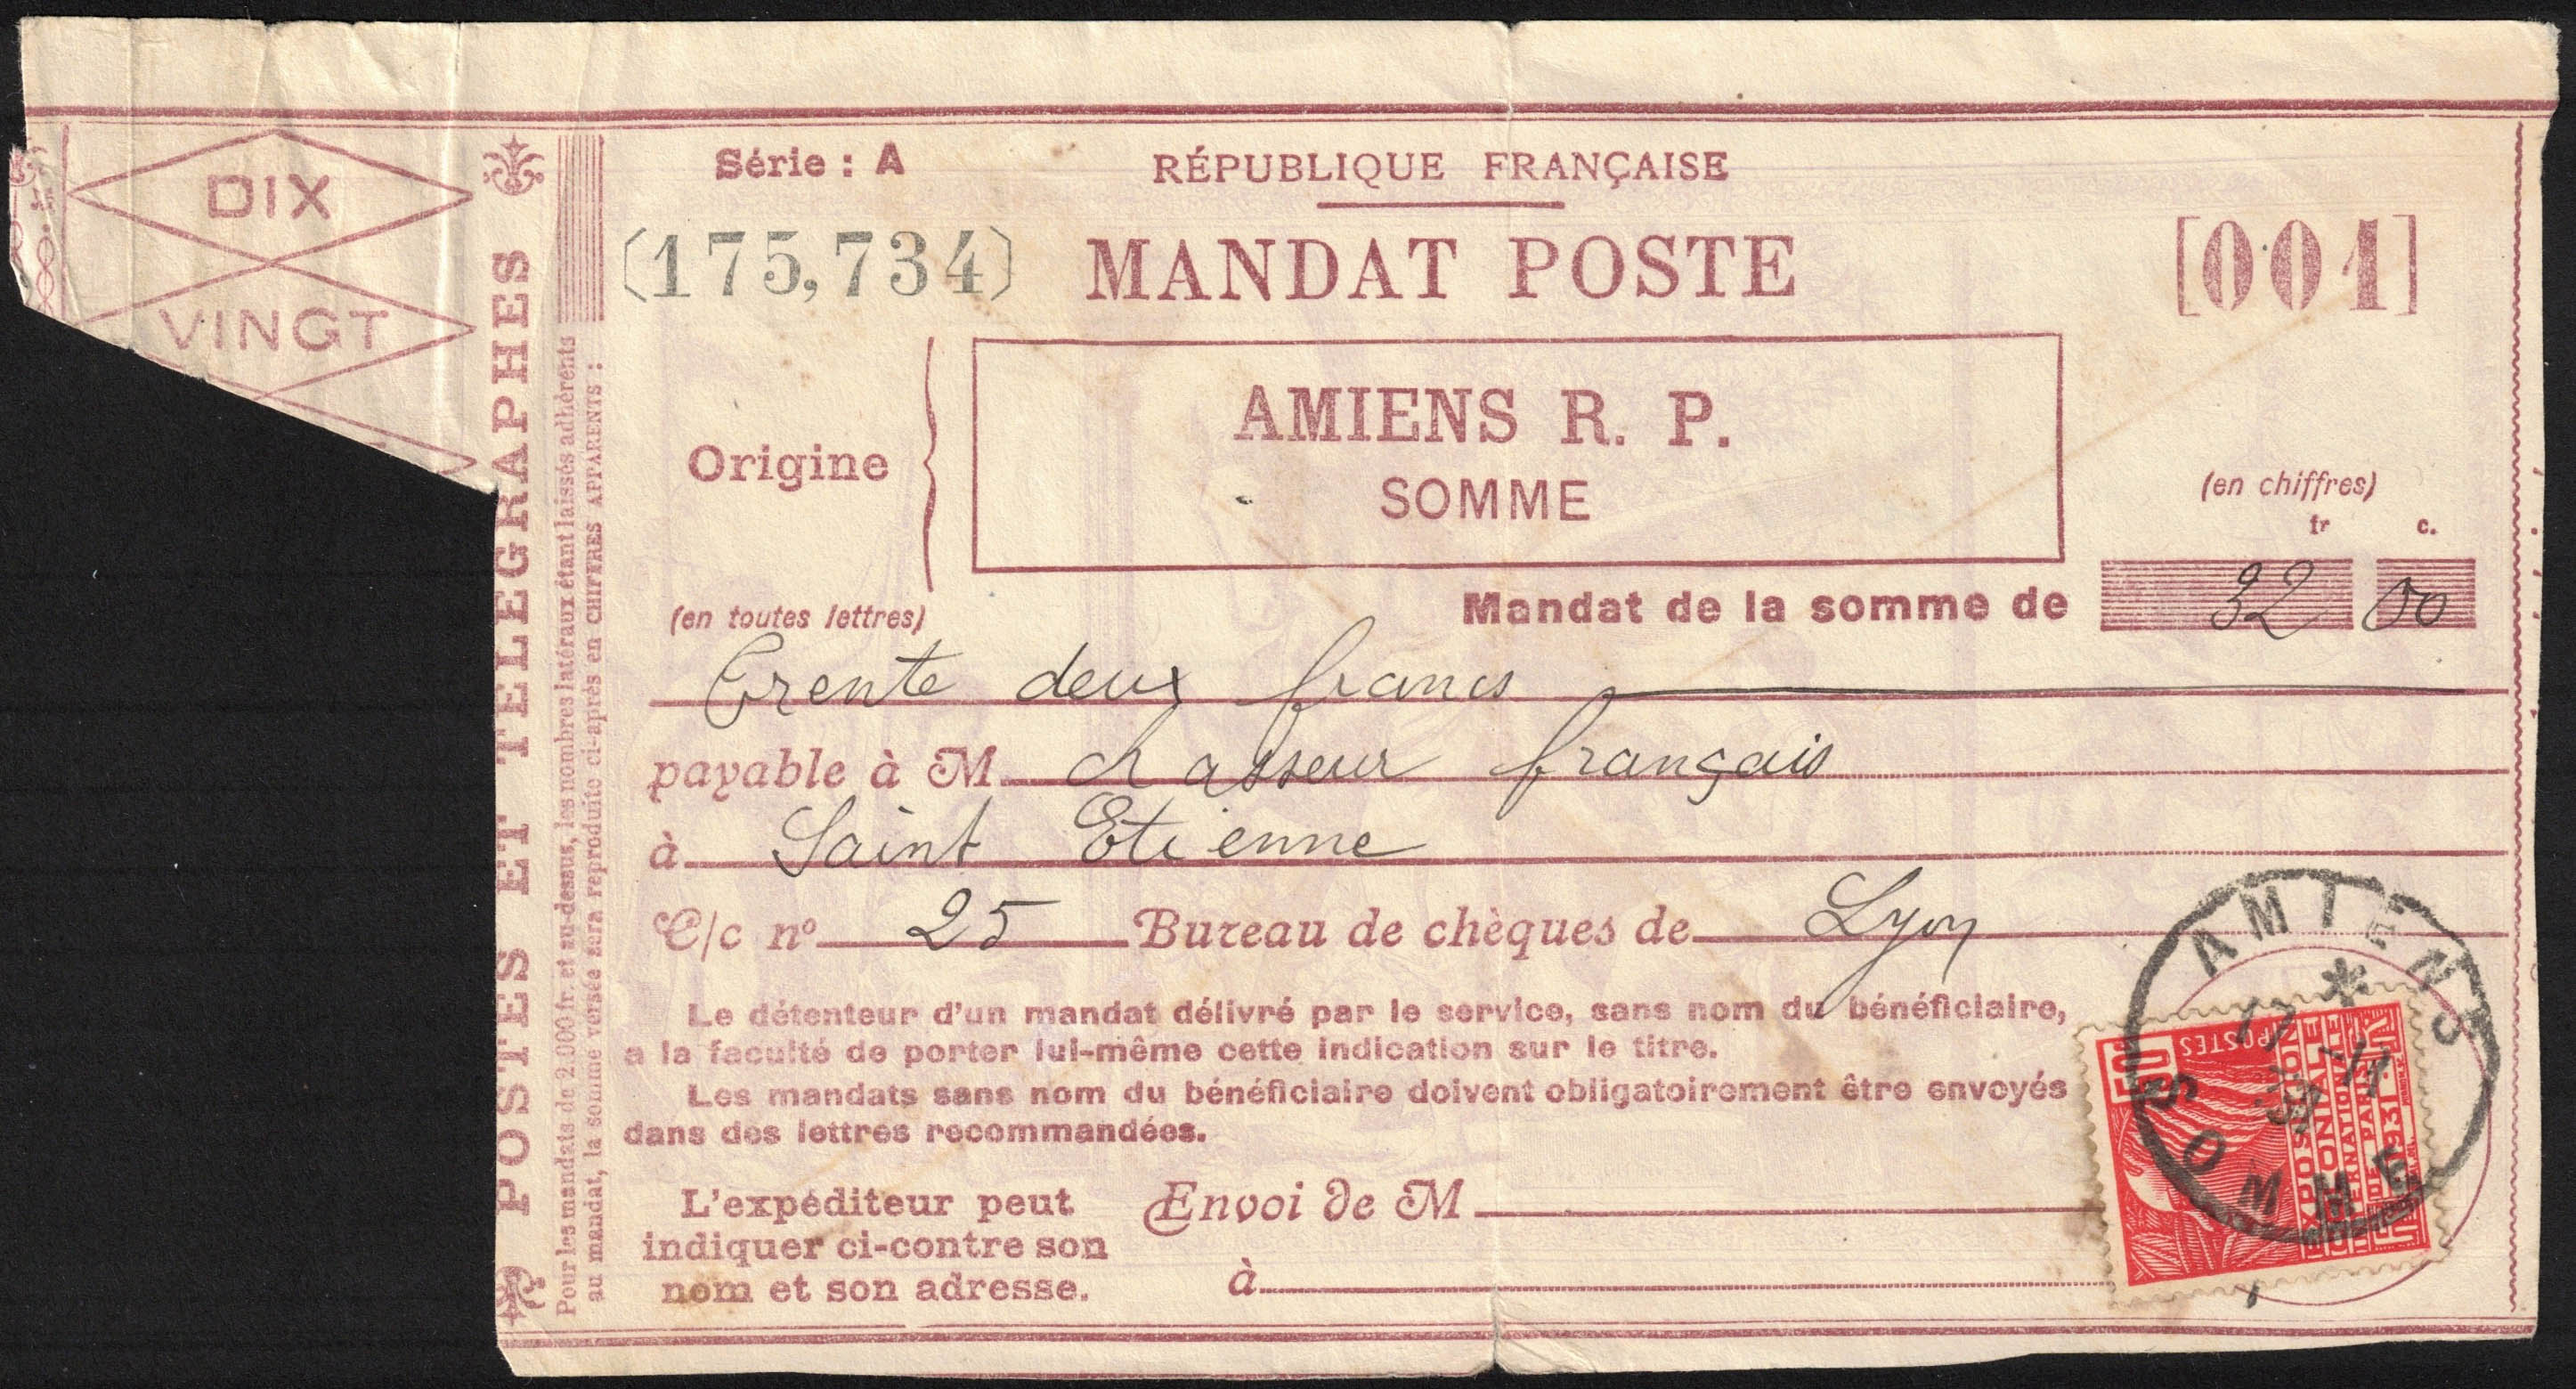 DIX
VINGT
POSTES ET TÉLÉGRAPHES
Pour les mandats de 2.000 fr. et au-dessus, les nombres latéraux étant laissés adhérents
au mandat, la somme versée sera reproduite ci-après en CHIFFRES APPARENTS :
Série : A
RÉPUBLIQUE FRANÇAISE
(175,734)
MANDAT POSTE
[001]
Origine
AMIENS R. P.
SOMME
(en chiffres)
fr c.
(en toutes lettres)
Mandat de la somme de 32 00
Trente deux francs
payable à M chasseur français
à Saint Etienne
C/c nº 25 Bureau de chèques de Lyon
Le détenteur d'un mandat délivré par le service, sans nom du bénéficiaire,
a la faculté de porter lui-même cette indication sur le titre.
Les mandats sans nom du bénéficiaire doivent obligatoirement être envoyés
dans des lettres recommandées.
L'expéditeur peut
indiquer ci-contre son
nom et son adresse.
Envoi de M
à
AMIENS
17 -11
SOMME
50
POSTES
EXPOSITION
COLONIALE
INTERNATIONALE
DE PARIS
1931